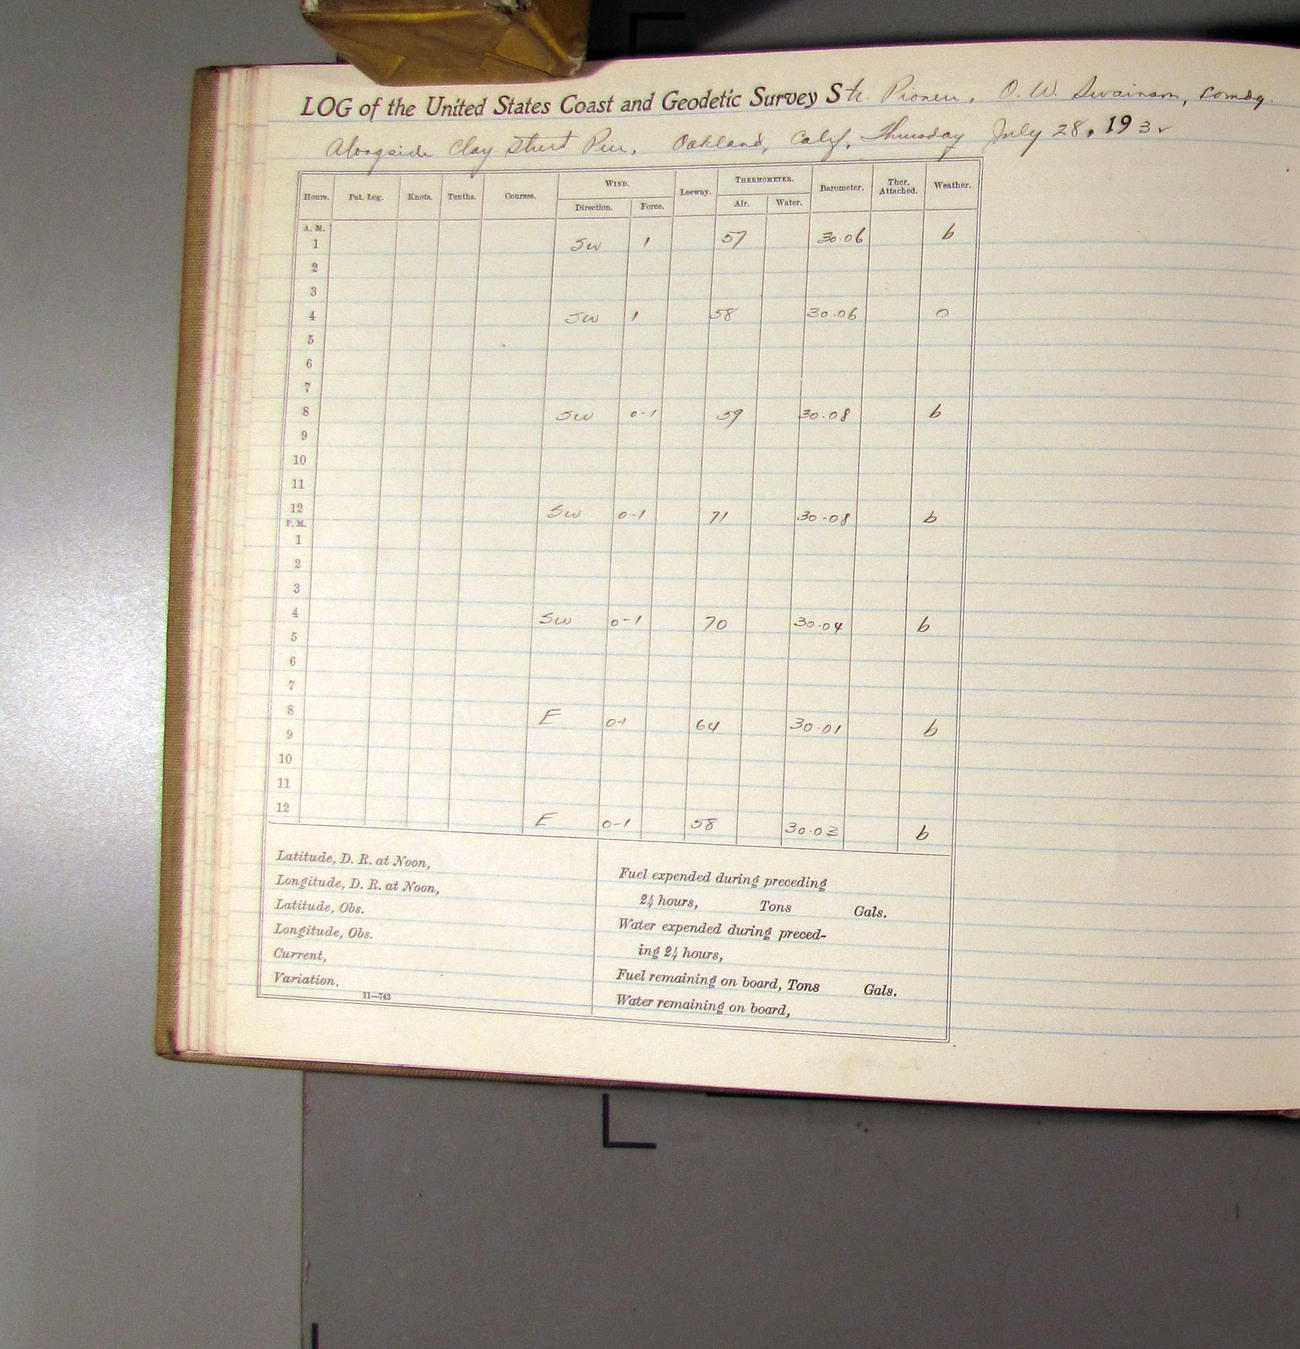 LOG of the United States Coast and Geodetic Survey Str. Pioneer, O. W. Swainson, Comdg.
Alongside Clay Street Pier, Oakland, Calif, Thursday July 28, 1932
Hours. Pat. Log. Knots. Tenths. Courses. WIND. Leeway. THERMOMETER. Barometer. Ther. Attached. Weather.
Direction. Force. Air. Water.
A. M.
1 SW 1 57 30.06 b
2
3
4 SW 1 58 30.06 o
5
6
7
8 SW 0-1 59 30.08 b
9
10
11
12 SW 0-1 71 30.08 b
P. M.
1
2
3
4 SW 0-1 70 30.04 b
5
6
7
8 E 0-1 64 30.01 b
9
10
11
12 E 0-1 58 30.03 b
Latitude, D. R. at Noon,
Longitude, D. R. at Noon,
Latitude, Obs.
Longitude, Obs.
Current,
Variation,
11—743
Fuel expended during preceding
24 hours, Tons Gals.
Water expended during preced-
ing 24 hours,
Fuel remaining on board, Tons Gals.
Water remaining on board,